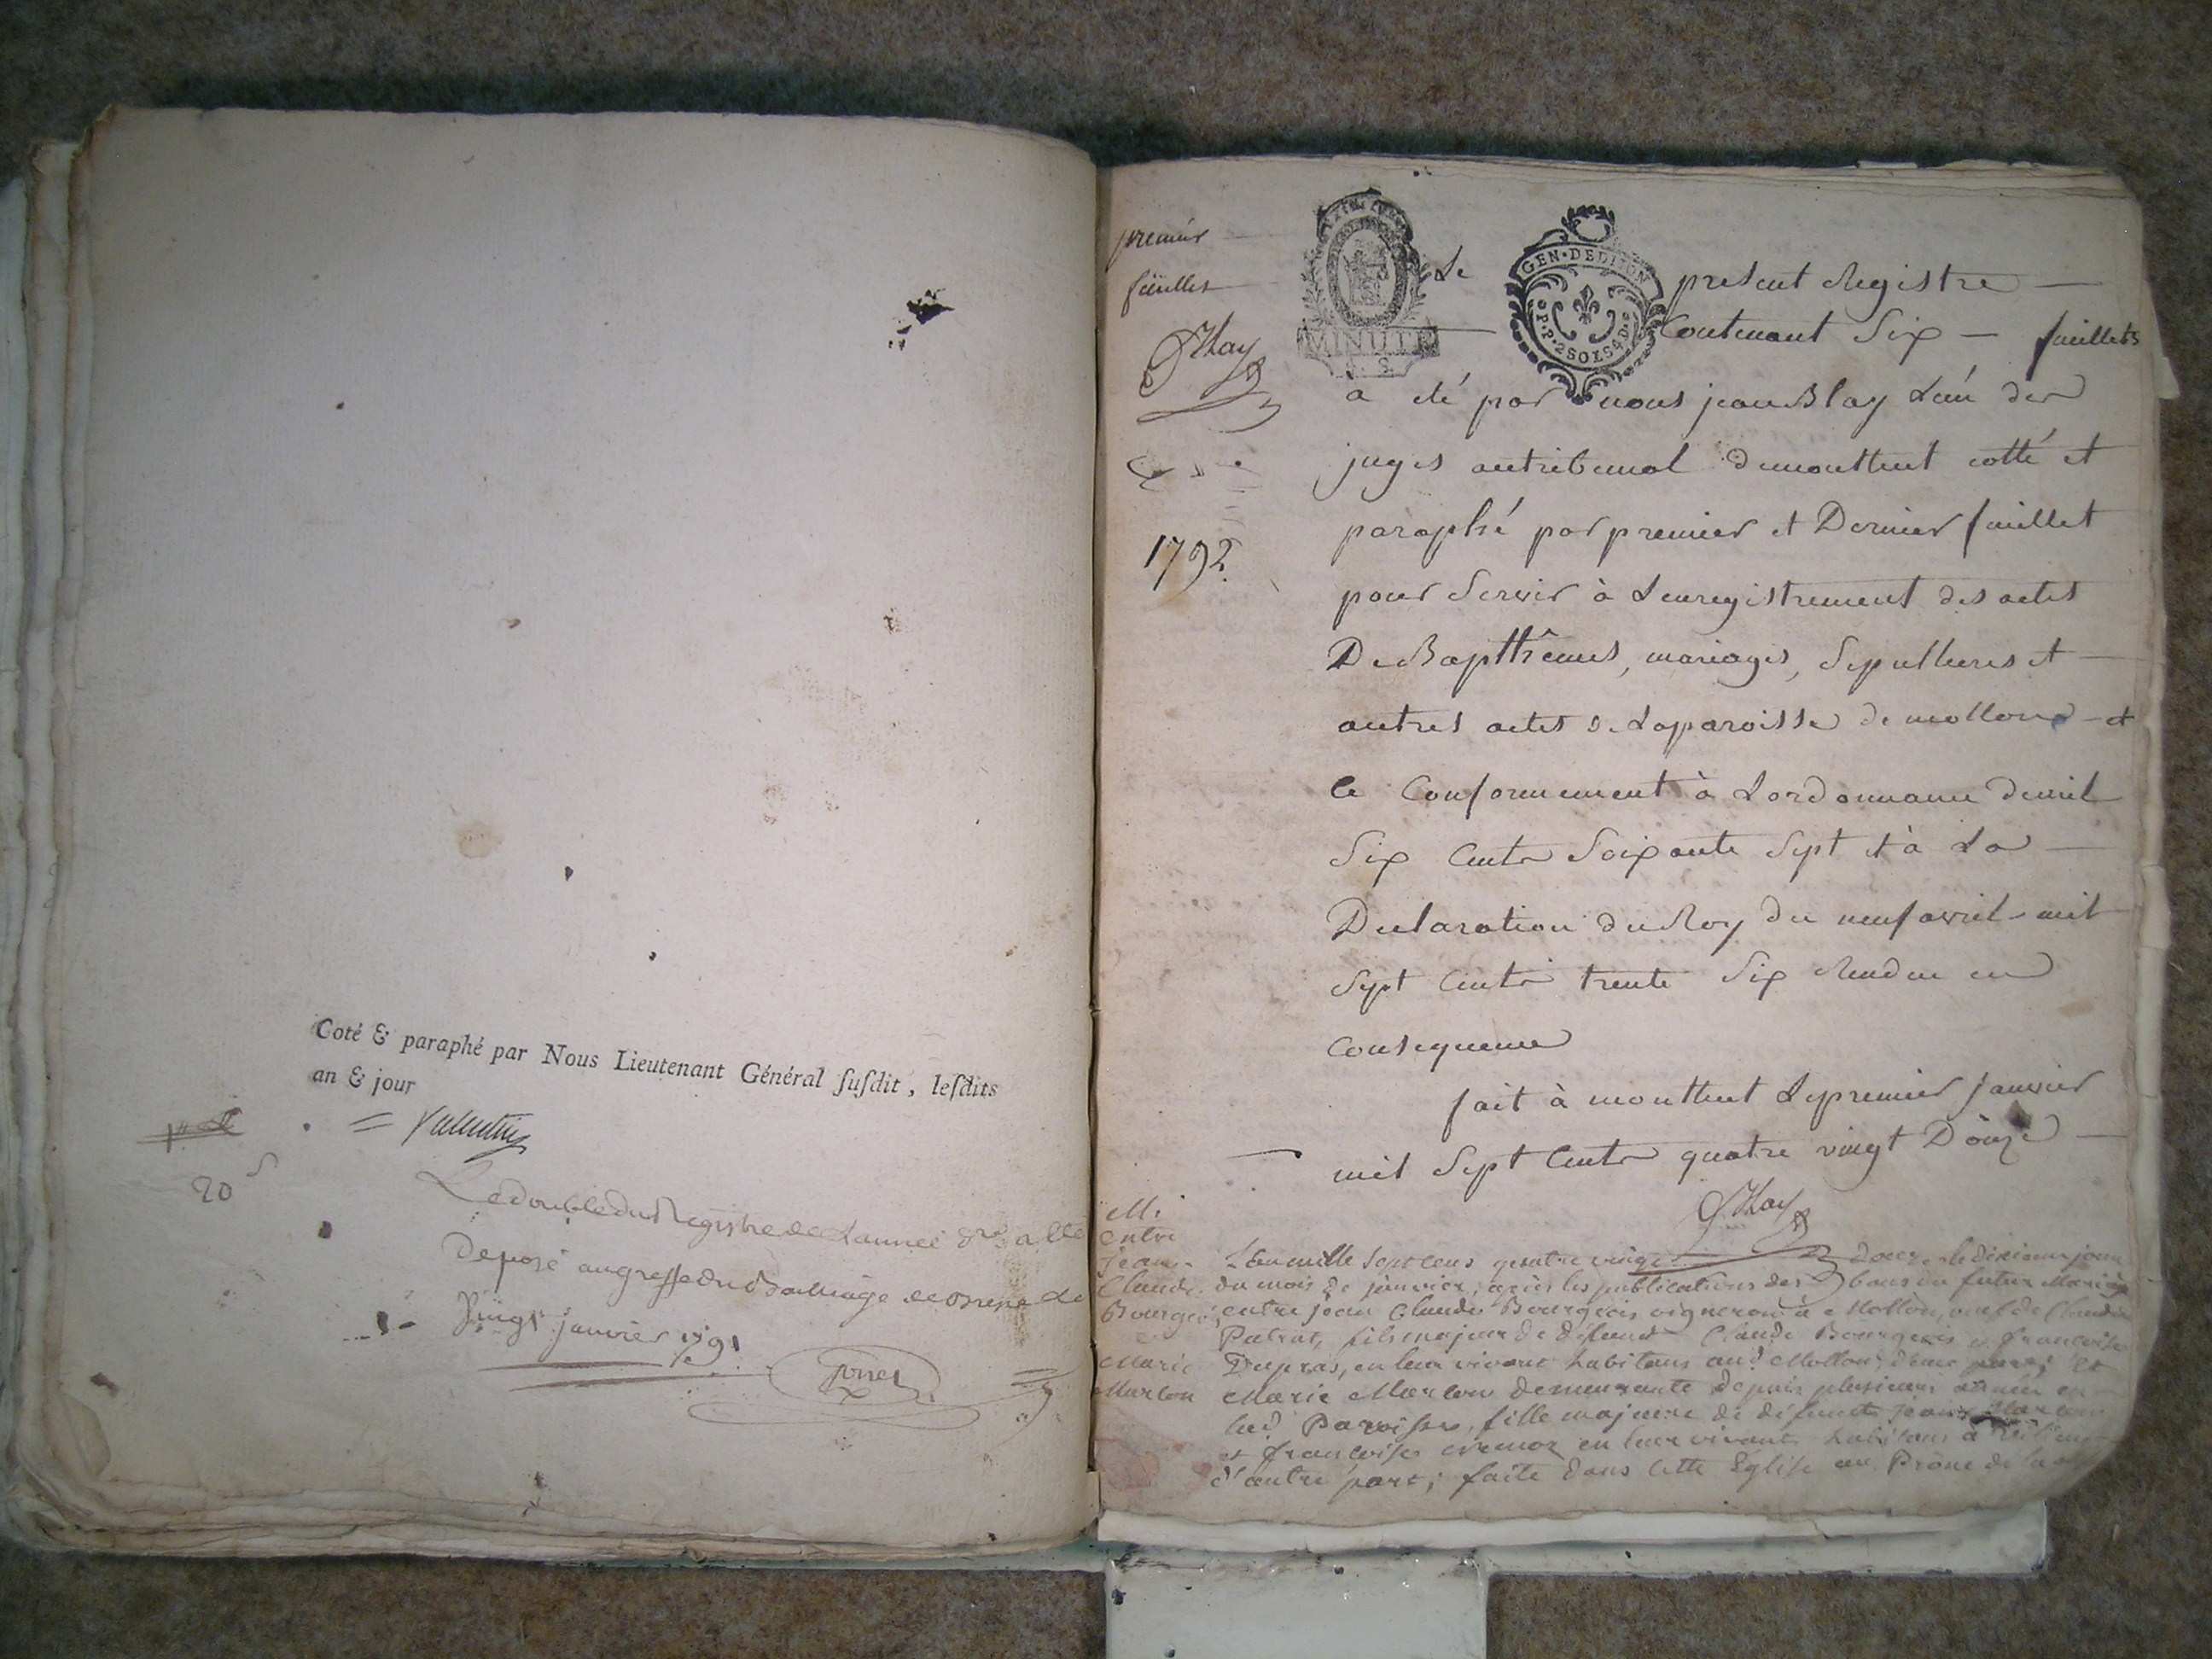 Coté & paraphé par Nous Lieutenant Général ſuſdit, leſdits
an & jour
Valentin
20 s
Le double du Registre de L'année a été
Deposé au greffe du Bailliage de Bresse Le
Vingt janvier 1791
premier
feuillet
Blay
1792
MINUTE
GEN·DE DIJON
P·P·2 SOLS 4 D
Le present Registre
Contenant Six feuillets
a eté par nous jean Blay L'un des
juges au tribunal de montluel cotté et
paraphé par premier et Dernier feuillet
pour Servir à L'enregistrement des actes
De Bapthêmes, mariages, Sepultures et
autres actes de La paroisse de mollon et
ce Conformement à L'ordonnance de mil
Six Cents Soixante Sept et à La
Declaration du Roy du neuf avril mil
Sept Cents trente Six Rendue en
Consequence
fait à montluel Le premier janvier
mil Sept Cents quatre vingt Douze
Blay
M.
entre
Jean
Claude
Bourgeois
Marie
Marlon
L'an mille sept cens quatre vingt douze le dixieme jour
du mois de janvier, après les publications des bans du futur Mariage
entre jean Claude Bourgeois vigneron à Mollon, de Claudine
fils majeur de défunts Claude Bourgeois et francoise
Dupras, en leur vivant habitans aud Mollon, d'une part; et
Marie demeurante depuis plusieurs années en
lad Paroisse, fille majeure de défunts jean
et francoise en leur vivant habitans à
d'autre part; faite dans cette Eglise au Prône de la